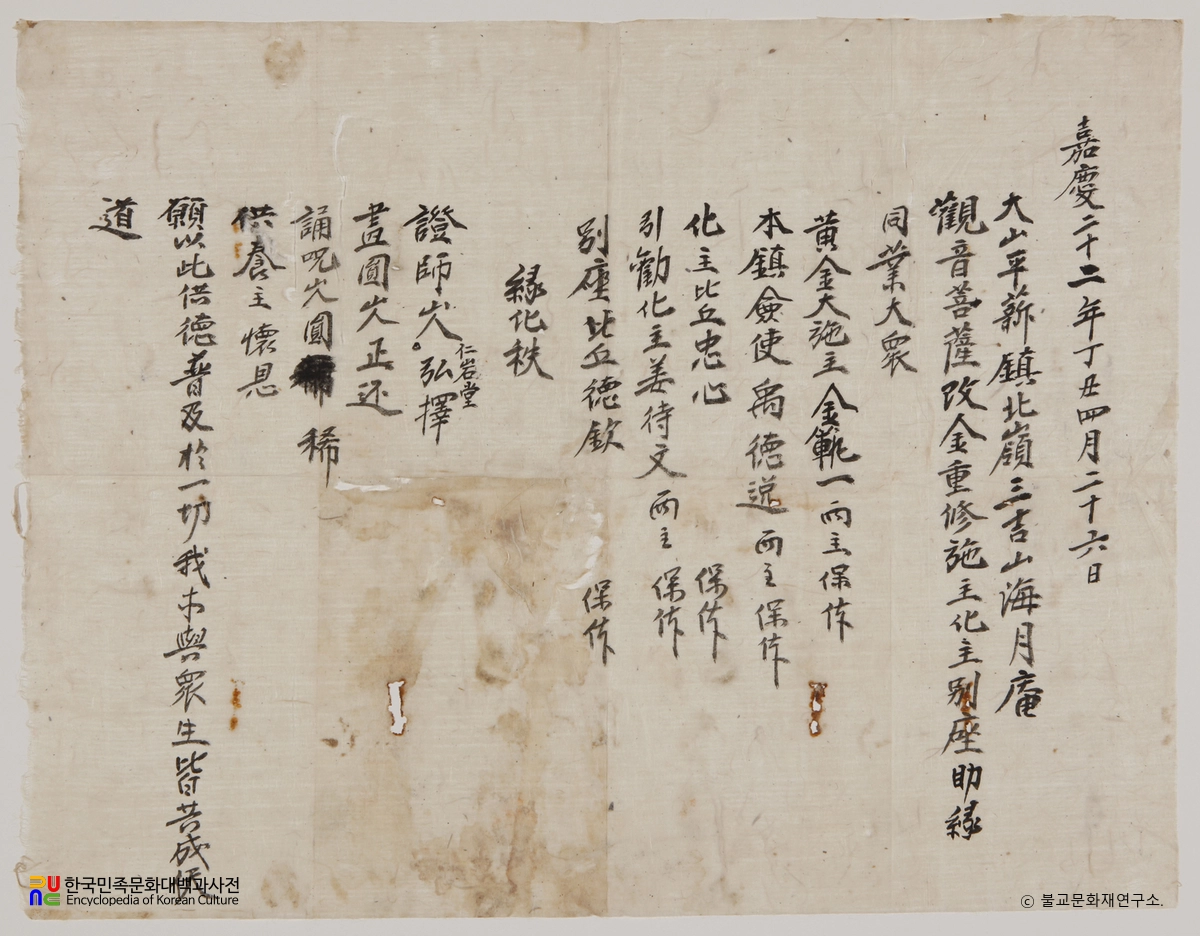 嘉慶二十二年丁丑四月二十六日
大山平薪鎮北嶺三吉山海月庵
觀音菩薩改金重修施主化主別座助緣
同業大衆
黃金大施主 金 一 兩主 保体
本鎮僉使 禹德 兩主 保体
化主比丘忠心 保体
引勸化主姜待文 兩主 保体
別座比丘德欽 保体
緣化秩
證師 仁岩堂 弘擇
畫圓 正还
誦呪 圓 稀
供養主 懷恩
願以此供德普及於一切我 與衆生皆共成佛
道
한국민족문화대백과사전
Encyclopedia of Korean Culture
ⓒ 불교문화재연구소.